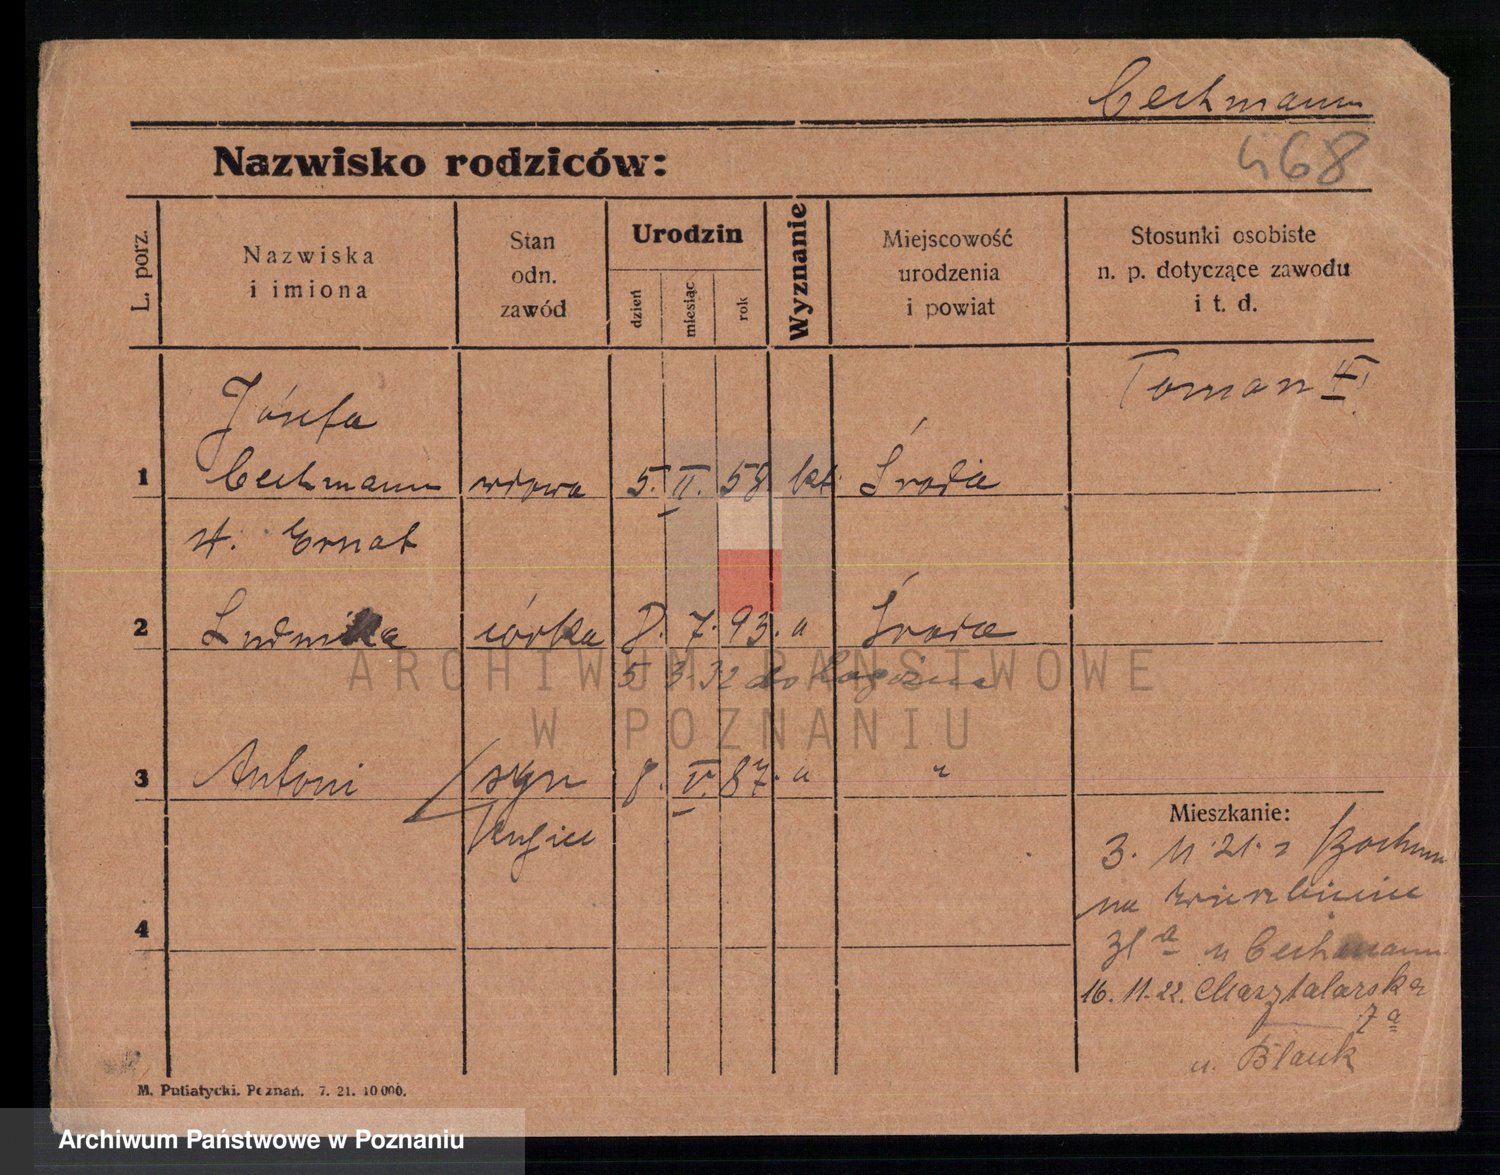 Cechmann
468
Nazwisko rodziców:
L. porz.
Nazwiska
i imiona
Stan
odn.
zawód
Urodzin
dzień
miesiąc
rok
Wyznanie
Miejscowość
urodzenia
i powiat
Stosunki osobiste
n. p. dotyczące zawodu
i t. d.
Toman III
Józefa
1 Cechmann wdowa 5. II. 58 kt. Środa
Ernst
2 Ludmiła córka 8. 7. 93. " Środa
5 3 32 do
ARCHIWUM PAŃSTWOWE
W POZNANIU
3 Antoni syn 8. V. 87. " "
Mieszkanie:
3. 11. 21. z Bochum
na Wierzbięcice
31 a u Cechmann
16. 11. 22. Masztalarska
7 a
u. Blank
4
M. Putiatycki. Poznań. 7. 21. 10 000.
Archiwum Państwowe w Poznaniu